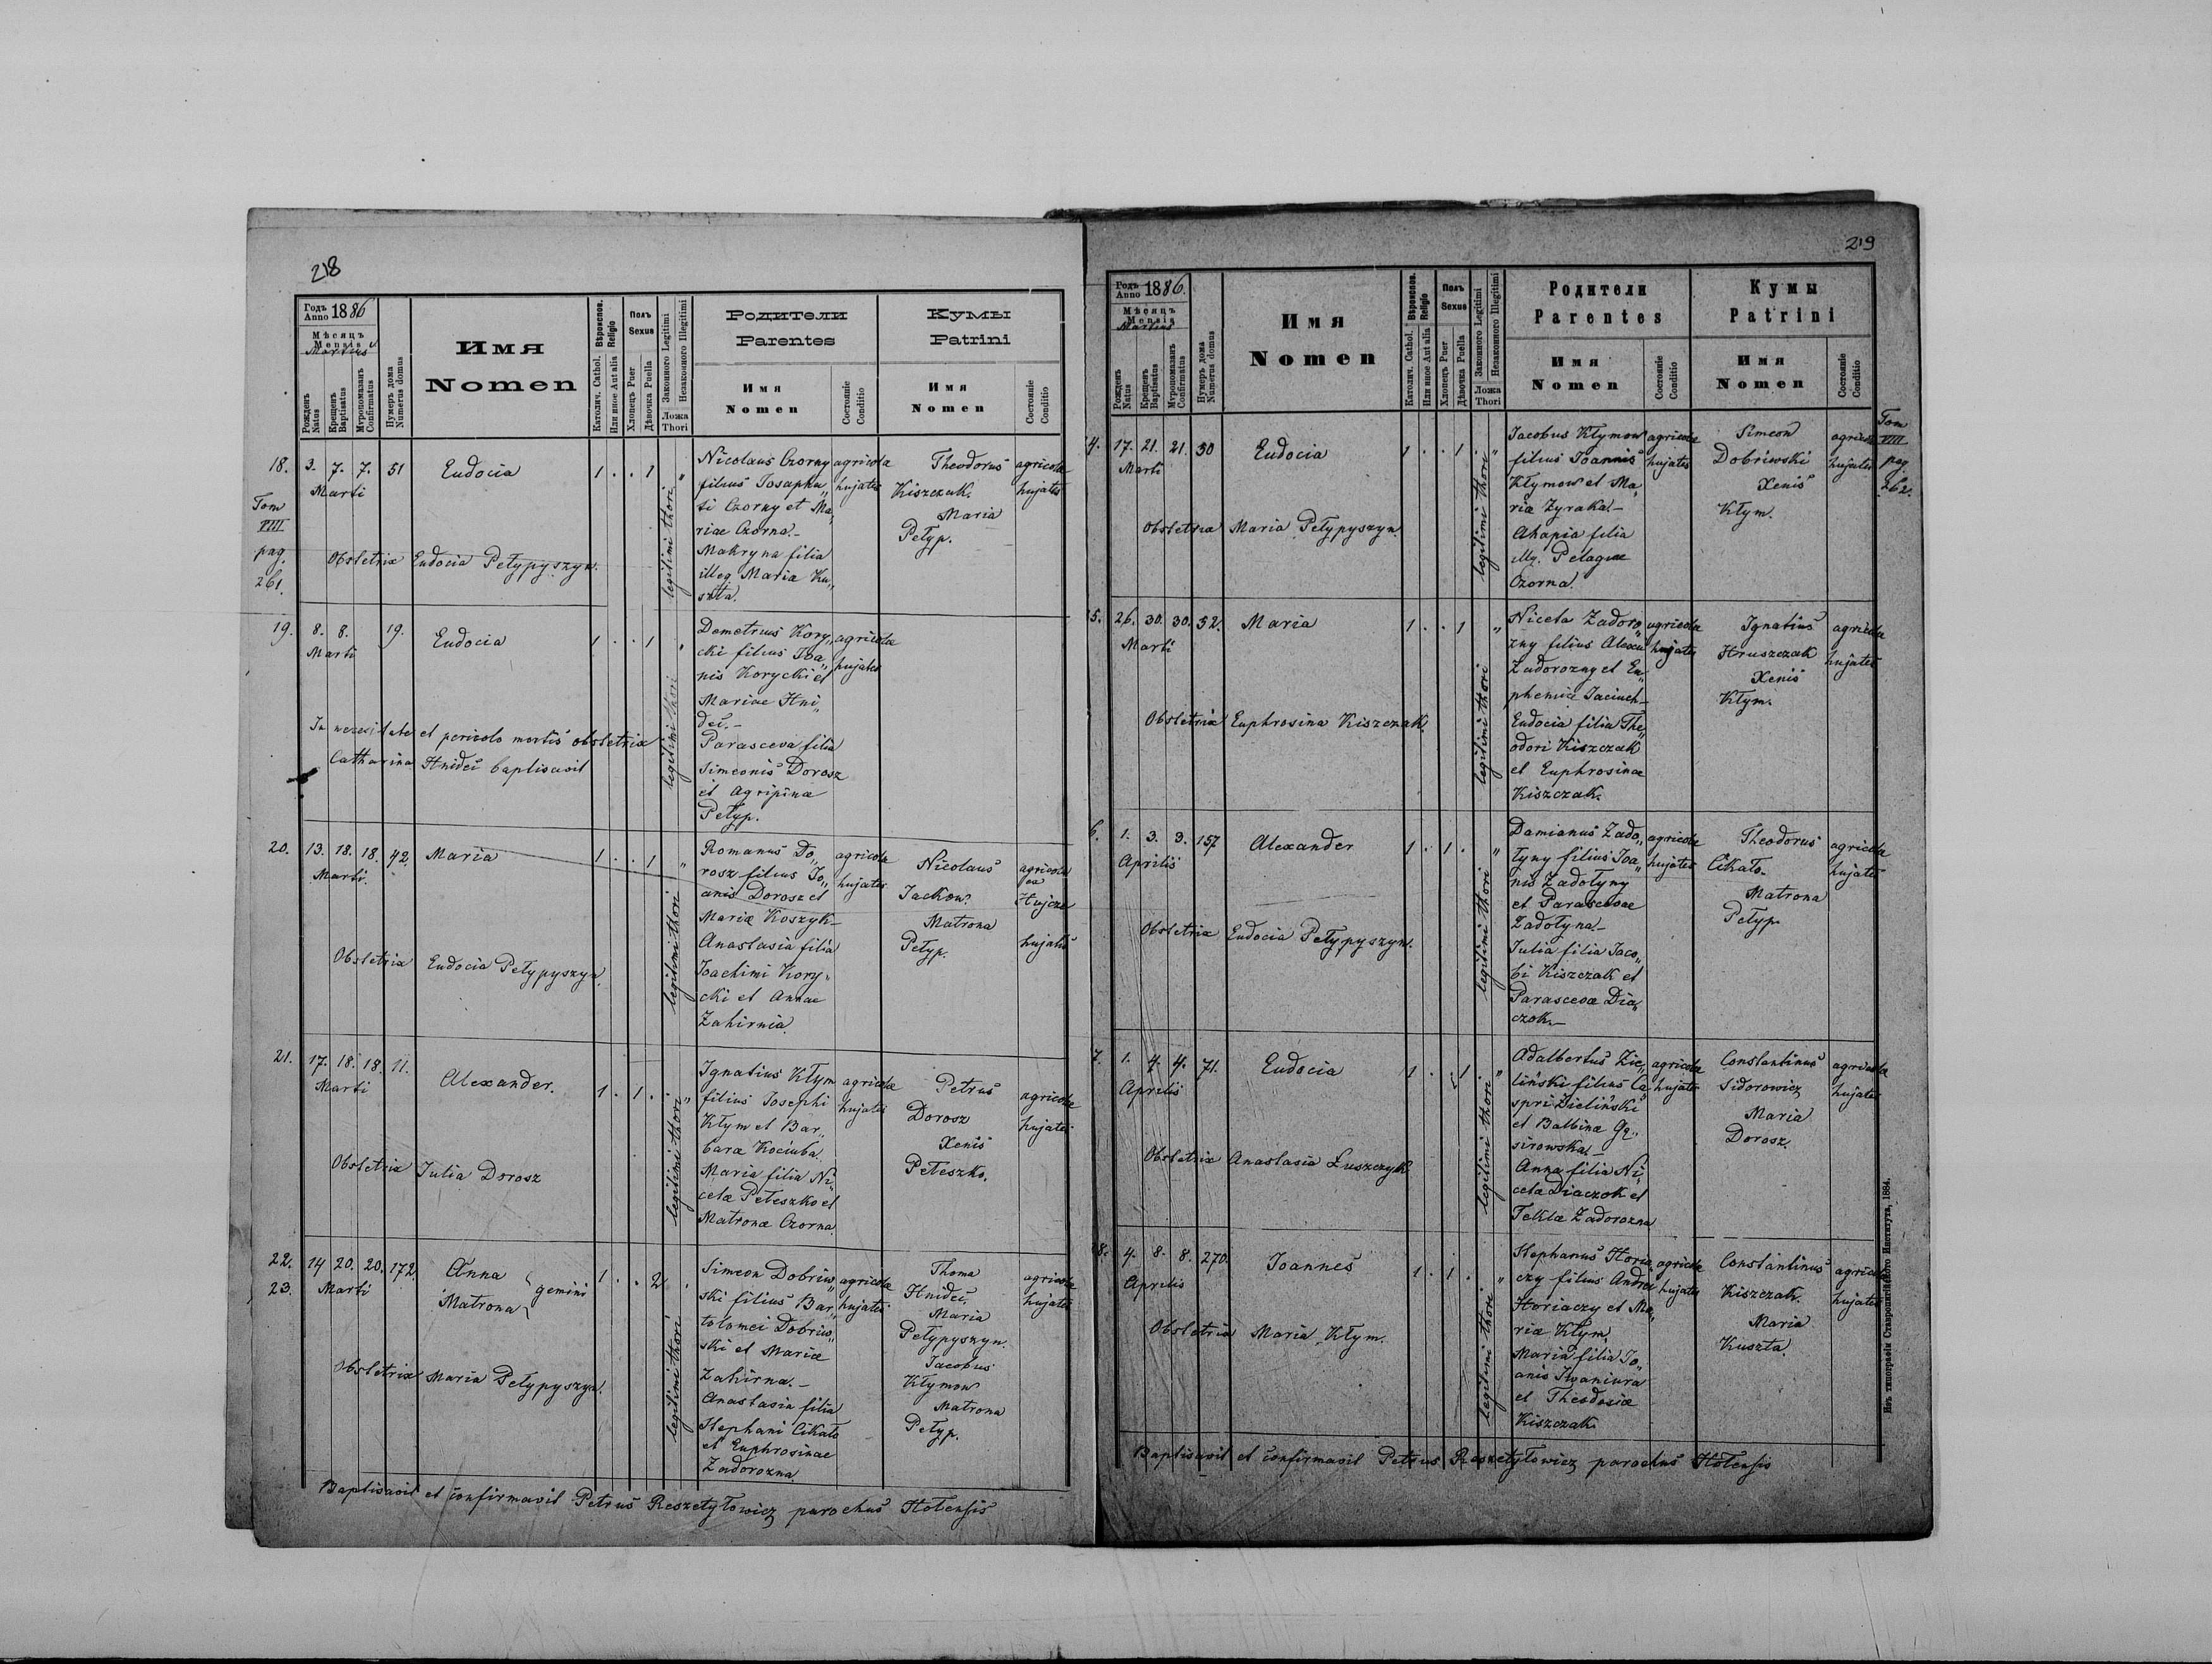 218
Годъ Anno 1886
Мѣсяцъ
Mensis
Martius
Рожденъ Natus
Крещенъ Baptisatus
Мѵропомазанъ Confirmatus
Нумеръ дома Numerus domus
Имя
Nomen
Вѣроиспов. Religio
Католич. Cathol.
Или иное Aut alia
Полъ
Sexus
Хлопецъ Puer
Дѣвочка Puella
Законного Legitimi
Незаконного Illegitimi
Ложа
Thori
Родители
Parentes
Имя
Nomen
Состояніе
Conditio
Кумы
Patrini
Имя
Nomen
Состояніе
Conditio
18. 3. 7. 7. 51 Eudocia 1 . . 1 "
Marti
Tom
XIII
pag.
261.
Obstetrix Eudocia Pełypyszyn.
legitimi thori
Nicolaus Czorny
filius Josapha„
ti Czorny et Ma„
riae Czorna.–
Makryna filia
illeg. Maria Ku„
szta.
agricola
hujates
Theodorus
Kiszczak.
Maria
Pełyp.
agricola
hujates
19. 8. 8. 19. Eudocia 1 . . 1 "
Marti
In necesitate et pericolo mortis obstetrix
Catharina Hnideć baptisavit
legitimi thori
Demetrius Kory„
cki filius Joa„
nis Korycki et
Mariae Hni„
deć.–
Parasceva filia
Simeonis Dorosz
et Agripina
Pełyp.
agricola
hujates
20. 13. 18. 18. 42. Maria 1 . . 1 "
Marti.
Obstetrix Eudocia Pełypyszyn.
legitimi thori
Romanus Do„
rosz filius Jo„
anis Dorosz et
Maria Koszyk–
Anastasia filia
Joachimi Kory„
cki et Annae
Zahirnia.
agricola
hujates
Nicolaus
Jackow.
Matrona
Pełyp.
agricola
ex
Hujcze
hujates
21. 17. 18. 18. 11. Alexander. 1 . 1 . "
Marti
Obstetrix Julia Dorosz
legitimi thori
Ignatius Kłym
filius Josephi
Kłym et Bar„
bara Kociuba.
Maria filia Ni„
ceta Peteszko et
Matrona Czorna
agricola
hujates
Petrus
Dorosz
Xenis
Peteszko.
agricola
hujates
22. 14 20. 20. 172. Anna
23. Marti Matrona gemini 1 . . 2 .
Obstetrix Maria Pełypyszyn.
legitimi thori
Simeon Dobriw„
ski filius Bar„
tolomei Dobriw„
ski et Maria
Zahirna.–
Anastasia filia
Stephani Cikało
et Euphrosinae
Zadorozna.
agricola
hujates
Thoma
Hnideć.
Maria
Pełypyszyn.
Jacobus
Kłymow
Matrona
Pełyp.
agricola
hujates
Baptisavit et confirmavit Petrus Reszetyłowicz parochus Hołensis
219
Годъ Anno 1886.
Мѣсяцъ
Mensis
Martius
Рожденъ Natus
Крещенъ Baptisatus
Мѵропомазанъ Confirmatus
Нумеръ дома Numerus domus
Имя
Nomen
Вѣроиспов. Religio
Католич. Cathol.
Или иное Aut alia
Полъ
Sexus
Хлопецъ Puer
Дѣвочка Puella
Законного Legitimi
Незаконного Illegitimi
Ложа
Thori
Родители
Parentes
Имя
Nomen
Состояніе
Conditio
Кумы
Patrini
Имя
Nomen
Состояніе
Conditio
Tom
XIII
pag.
262.
4. 17. 21. 21. 50 Eudocia 1 . . 1 "
Marti
Obstetrix Maria Pełypyszyn.
legitimi thori
Jacobus Kłymow
filius Joannis
Kłymow et Ma„
ria Zyraka.–
Ahapia filia
illg. Pelagiae
Czorna.
agricola
hujates
Simeon
Dobriwski
Xenis
Kłym.
agricola
hujates
5. 26. 30. 30. 52. Maria 1 . . 1 "
Marti
Obstetrix Euphrosina Kiszczak.
legitimi thori
Niceta Zadoro„
zny filius Alexeu
Zadorozny et Eu„
phemiæ Jaciuch–
Eudocia filia The„
odori Kiszczak
et Euphrosinae
Kiszczak.
agricola
hujates
Ignatius
Hruszczak
Xenis
Kłym.
agricola
hujates
6. 1. 3. 3. 157 Alexander 1 . 1 . "
Aprilis
Obstetrix Eudocia Pełypyszyn.
legitimi thori
Damianus Zado„
łyny filius Joa„
nis Zadołyny
et Parascevae
Zadołyna–
Julia filia Jaco„
bi Kiszczak et
Parasceva Dia„
czok.–
agricola
hujates
Theodorus
Cikało.
Matrona
Pełyp.
agricola
hujates
7. 1. 4. 4. 71. Eudocia 1 . . 1 "
Aprilis
Obstetrix Anastasia Łuszczyk
legitimi thori
Adalbertus Zie„
liński filius Ca„
spri Zieliński
et Balbina Gą„
sirowska–
Anna filia Ni„
ceta Diaczok et
Tekla Zadorozna
agricola
hujates
Constantinus
Sidorowicz
Maria
Dorosz.
agricola
hujates
8. 4. 8. 8. 270. Joannes 1 . 1 . "
Aprilis
Obstetrix Maria Kłym.
legitimi thori
Stephanus Horia„
czy filius Andrei
Horiaczy et Ma„
ria Kłym.
Maria filia Jo„
anis Iwaniura
et Theodosia
Kiszczak.
agricola
hujates
Constantinus
Kiszczak.
Maria
Kuszta.
agricola
hujates
Baptisavit et confirmavit Petrus Reszetyłowicz parochus Hołensis
Изъ типографіи Ставропигійского Института, 1884.